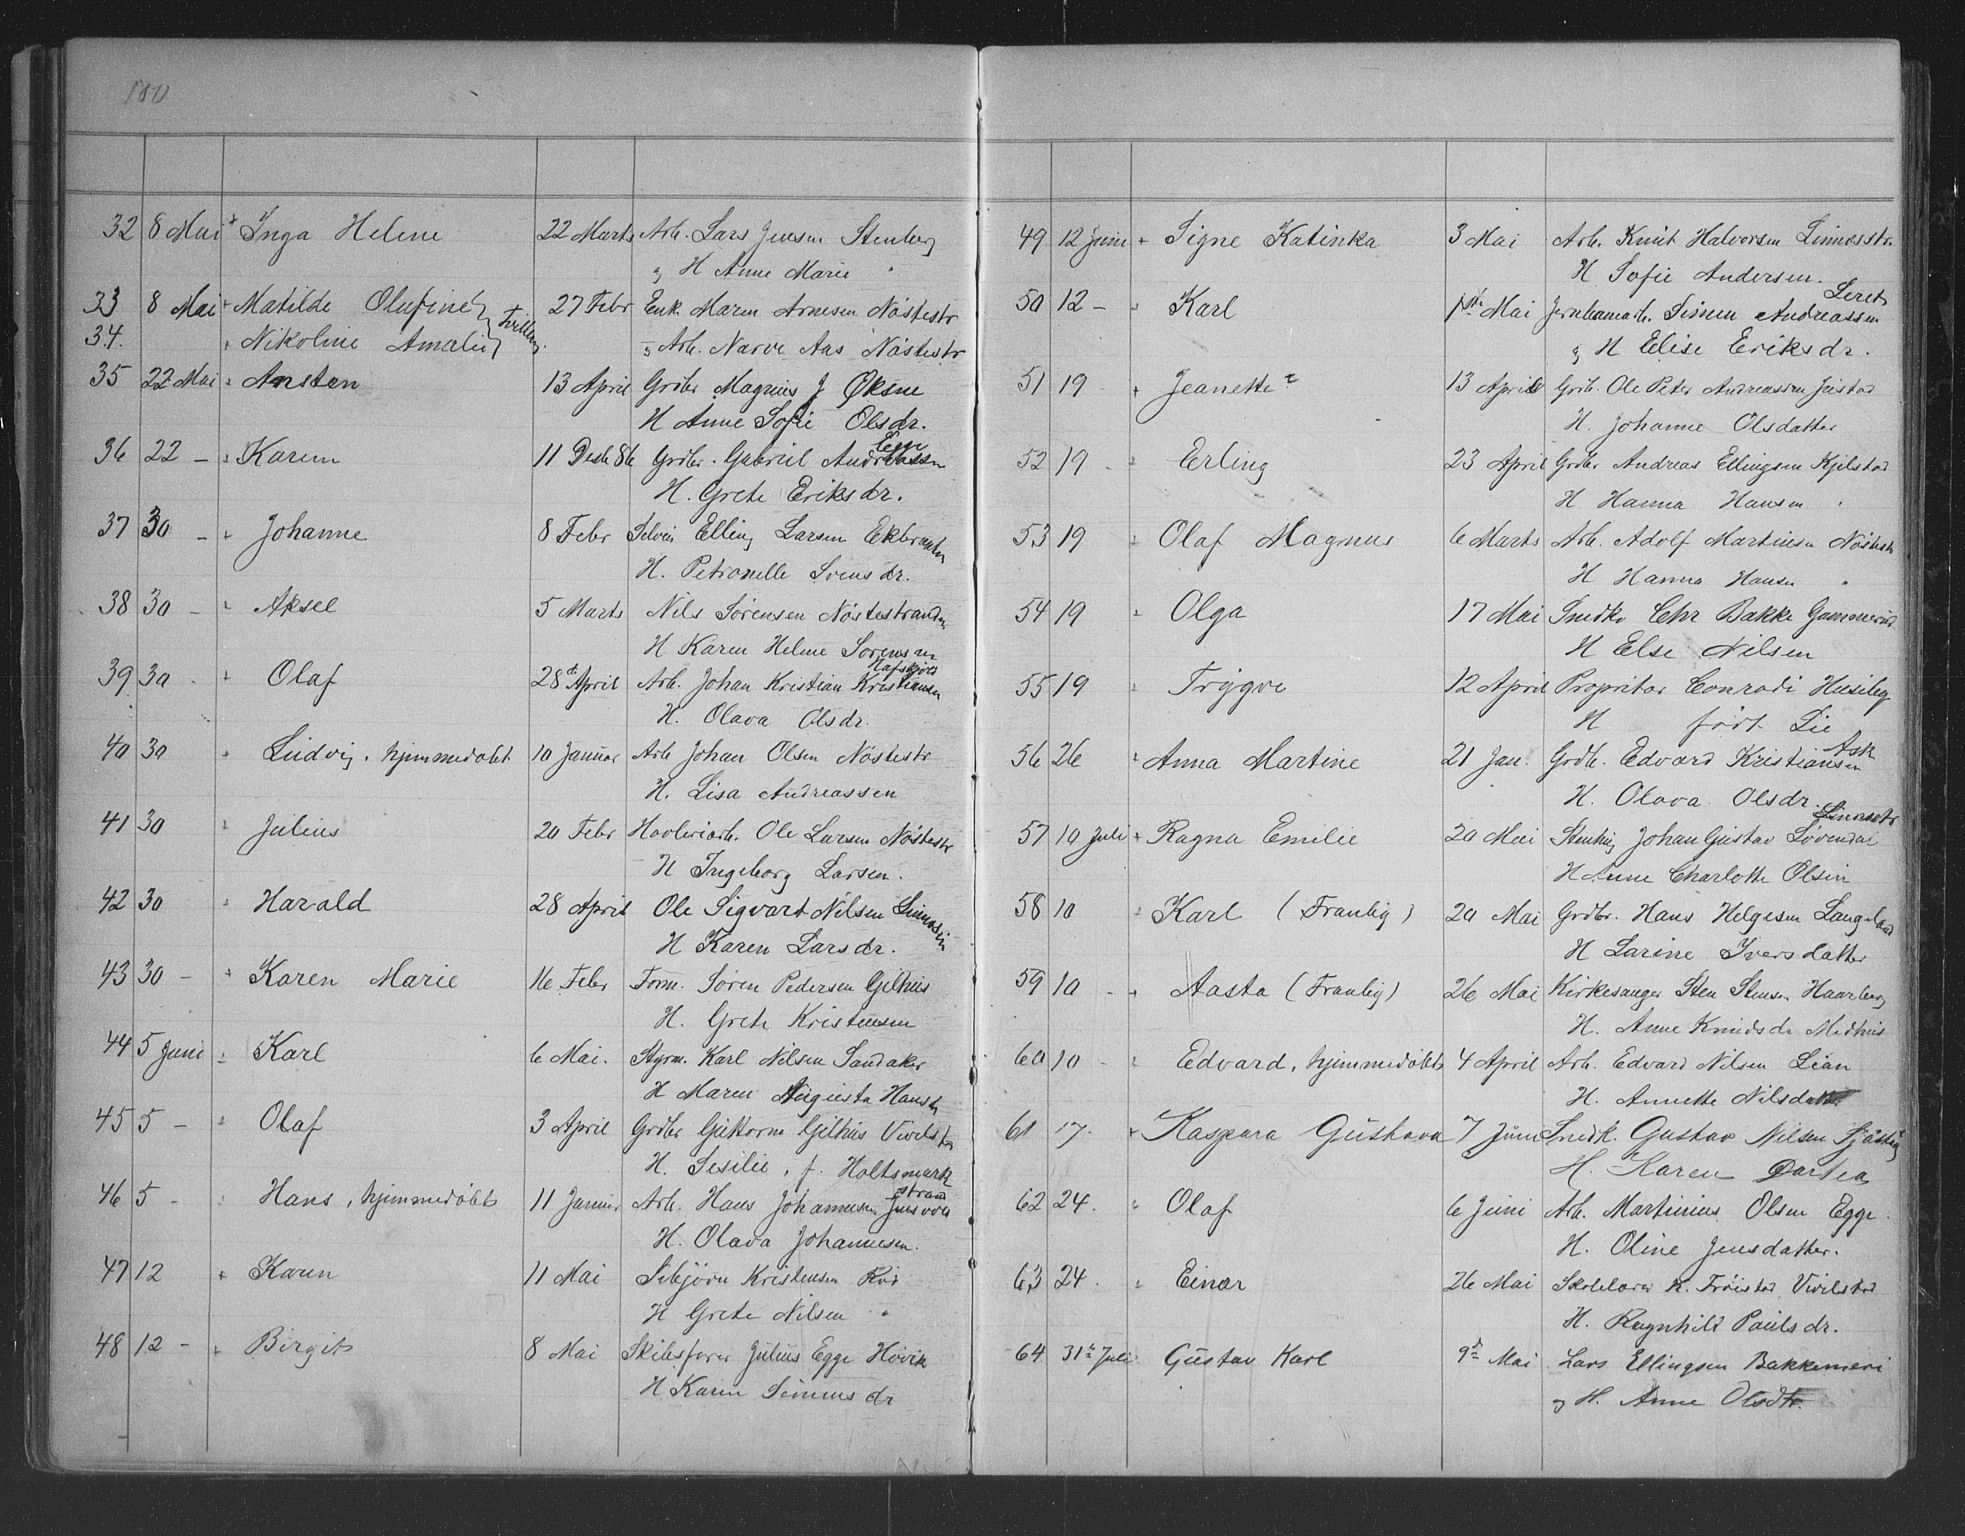 100
32 8 Mai + Inga Helene 22 Marts Arb. Lars Jensen Stenberg
og H Anne Marie "
33 8 Mai + Matilde Olufine 27 Febr Enk. Maren Arnesen Nöstestr
34. Nikoline Amalie Tvilling. og Arb. Narve Aas Nöstestr
35 22 Mai Ansten 13 April Grdbr Magnus J Øksne
H Anne Sofie Olsdr.
36 22 – Karen 11 Decb 86 Grdbr. Gabriel Andreassen Egge
H. Grete Eriksdr.
37 30 – Johanne 8 Febr Selvei Elling Larsen Ekbraaten
H. Petronelle Svensdr.
38 30 – Aksel 5 Marts Nils Sörensen Nöstestranden
H Karen Helene Sörensen
39 30 Olaf 28de April Arb. Johan Kristian Kristiansen
H. Olava Olsdr.
40 30 Ludvig, hjemmedöbt 10 Januar Arb Johan Olsen Nöstestr
H. Lisa Andreassen
41 30 Julius 20 Febr Hövleriarb. Ole Larsen Nöstestr
H Ingeborg Larsen.
42 30 Harald 28 April Ole Sigvart Nilsen
H Karen Larsdr.
43 30 – Karen Marie 16 Febr Form. Sören Pedersen Gilhus
H. Grete Kristensen
44 5 Juni Karl 6 Mai. Styrm. Karl Nilsen Sandaker
H Maren Augusta Hansen
45 5 – Olaf 3 April Grdbr Guttorm Gilhus Vivilstad
H. Sesilie, f. Holtsmark
46 5 – Hans, hjemmedöbt 11 Januar Arb. Hans Johannesen
H. Olava Johannesen.
47 12 Karen 11 Mai Sebjörn Kristensen
H Grete Nilsen "
48 12 – Birgit 8 Mai Skibsförer Julius Egge Hövik
H Karen Simensdr
49 12 Juni + Signe Katinka 3 Mai Arb. Knut Halvorsen Linnesstr.
H Sofie Andersen.
50 12 – Karl 1ste Mai Jernbanearb. Simen Andreassen Leret
og H Elise Eriksdr.
51 19 + Jeanette 13 April Grdb. Ole Peter Andreassen Justad
H. Johanne Olsdatter
52 19 – Erling 23 April Grdbr Andreas Ellingsen Kjelstad
H Hanna Hansen "
53 19 Olaf Magnus 6 Marts Arb. Adolf Martinsen Nöstestr
H Hanna Hansen "
54 19 Olga 17 Mai Smedk. Chr Bakke
H Else Nilsen
55 19 Trygve 12 April Propritær Conradi Huseby
H födt Lie
56 26 Anna Martine 21 Jan. Grdb. Edvard Kristiansen Ask
H. Olava Olsdr.
57 10 Juli + Ragna Emilie 20 Mai Stenhug Johan Gustav Linnesstr
H Anne Charlotte Olsen
58 10 Karl (Tranby) 20 Mai Grdbr. Hans Helgesen Langeland
H Larine Iversdatter
59 10 – Aasta (Tranby) 26 Mai Kirkesanger Sten Stensen Haarberg
H. Anne Knudsdr Medhus
60 10 – Edvard, hjemmedöbt 4 April Arb. Edvard Nilsen Lian
H. Annette Nilsdatter
61 17. Kaspara Gustava 7 Juni Smedk. Gustav Nilsen
H. Karen Dortea
62 24. Olaf 6 Juni Arb. Martinius Olsen Egge.
H. Oline Jensdatter.
63 24. Einar 26 Mai Skolelærer K. Tröistad Vivilstad
H. Ragnhild Paulsdr.
64 31te Juli Gustav Karl 9de Mai Lars Ellingsen Bakkemeri
og H. Anne Olsdtr.